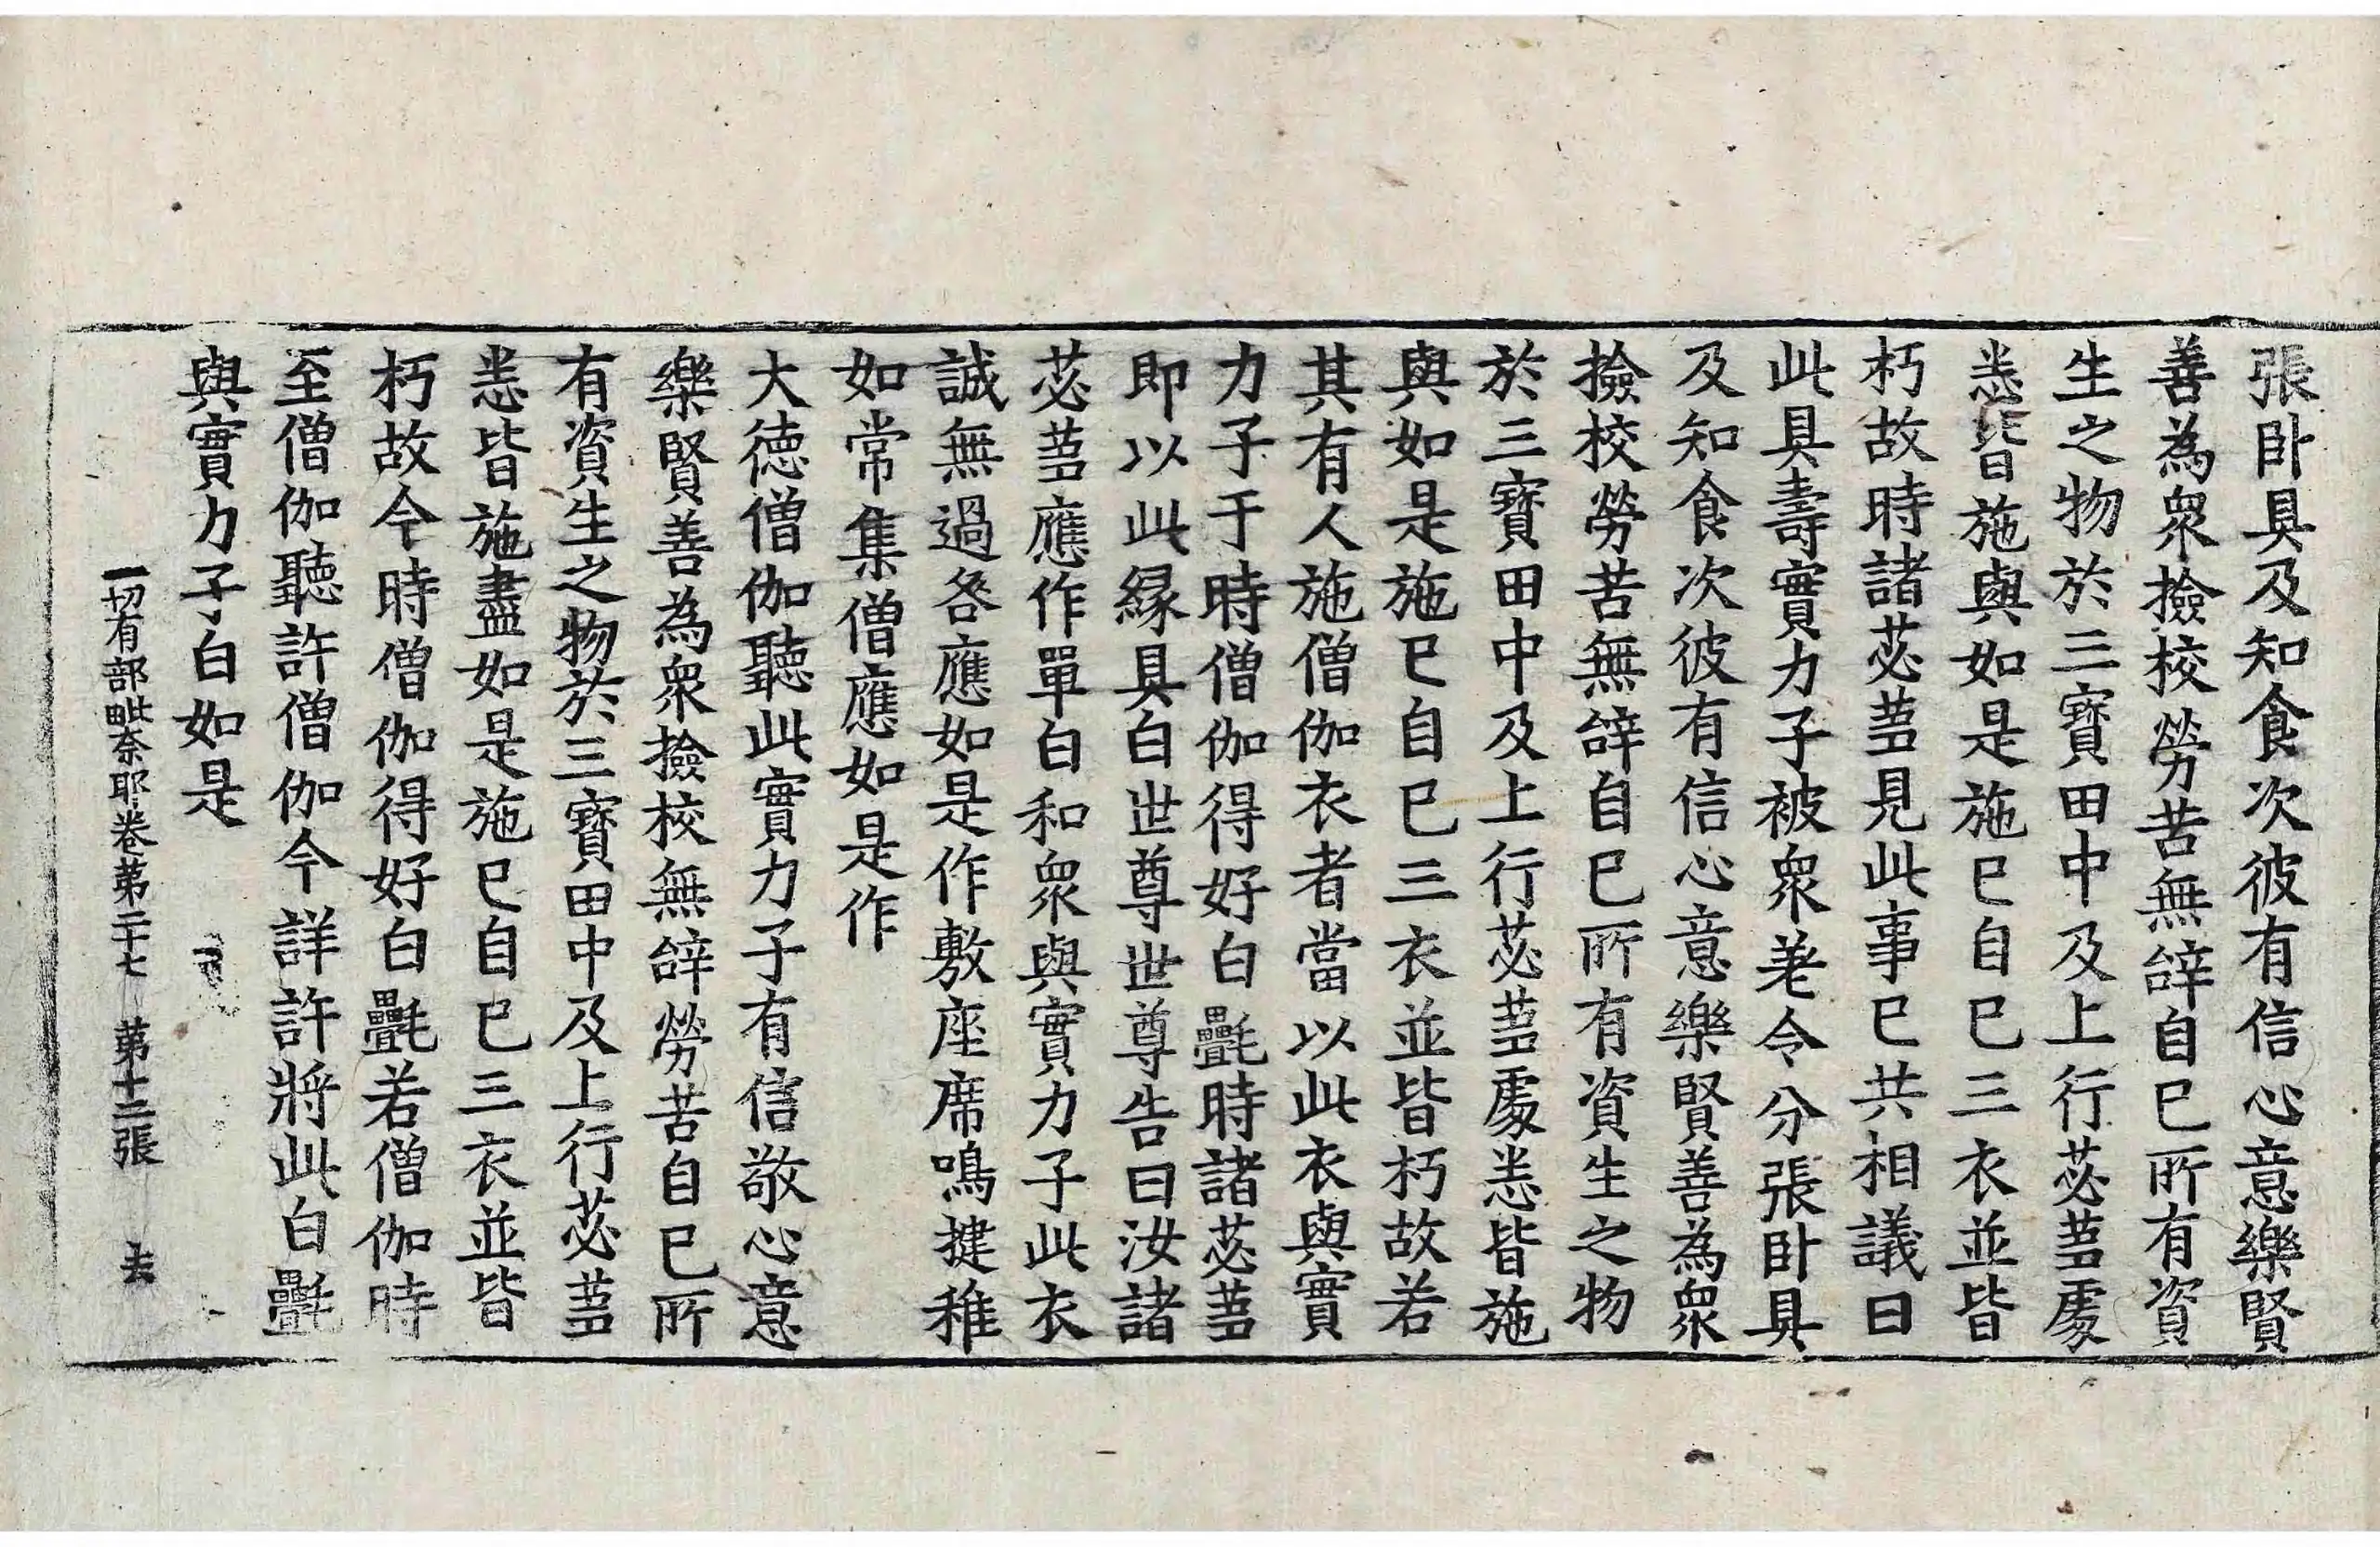 張卧具及知食次彼有信心意樂賢
善為衆撿校勞苦無辝自已所有資
生之物於三寶田中及上行苾芻處
悉皆施與如是施已自已三衣並皆
朽故時諸苾芻見此事已共相議曰
此具壽實力子被衆差令分張卧具
及知食次彼有信心意樂賢善為衆
撿校勞苦無辝自已所有資生之物
於三寶田中及上行苾芻處悉皆施
與如是施已自已三衣並皆朽故若
其有人施僧伽衣者當以此衣與實
力子于時僧伽得好白㲲時諸苾芻
即以此緣具白世尊世尊告曰汝諸
苾芻應作單白和衆與實力子此衣
誠無過咎應如是作敷座席鳴揵稚
如常集僧應如是作
大德僧伽聽此實力子有信敬心意
樂賢善為衆撿校無辝勞苦自已所
有資生之物於三寶田中及上行苾芻
悉皆施盡如是施已自已三衣並皆
朽故今時僧伽得好白㲲若僧伽時
至僧伽聽許僧伽今詳許將此白㲲
與實力子白如是
一切有部毗奈耶卷第二十七　第十二張　去